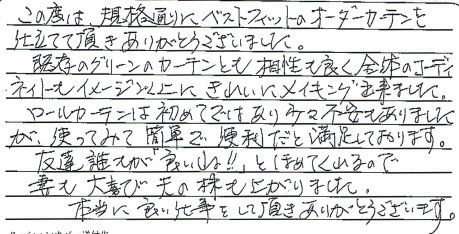 この度は、規格通りにベストフィットのオーダーカーテンを
仕立てて頂きありがとうございました。
既存のグリーンのカーテンとも相性も良く全体のコーディ
ネイトもイメージ以上にきれいにメイキング出来ました。
ロールカーテンは初めてではあり少々不安もありました
が、使ってみて簡単で便利だと満足しております。
友達誰もが「良いね!!」とほめてくれるので
妻も大喜び夫の株も上がりました。
本当に良い仕事をして頂きありがとうございます。